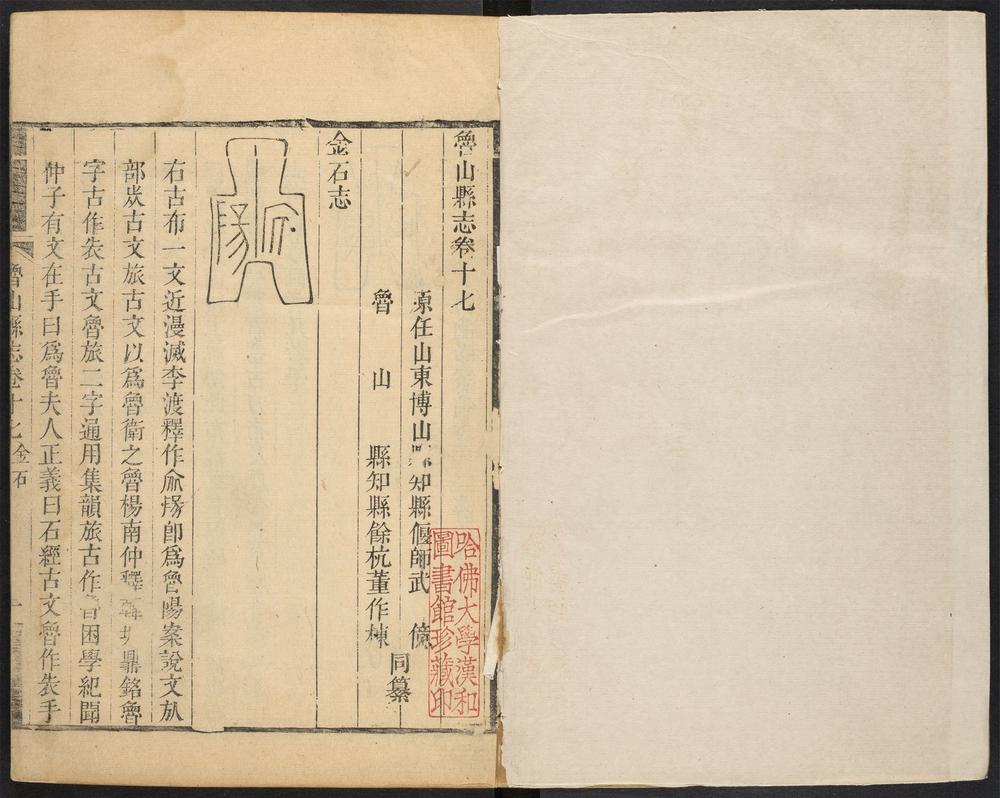 魯山縣志卷十七
原任山東博山縣知縣偃師武 億
魯 山 縣知縣餘杭董作棟
同纂
金石志
右古布一文近漫滅李渡釋作㑹昜卽爲魯陽案說文㫃
部㞢古文旅古文以爲魯衞之魯楊南仲釋 鼎銘魯
字古作㞢古文魯旅二字通用集韻旅古作 困學紀聞
仲子有文在手曰爲魯夫人正義曰石經古文魯作㞢手
魯山縣志卷十七 金石 一
哈佛大學漢和
圖書館珍藏印